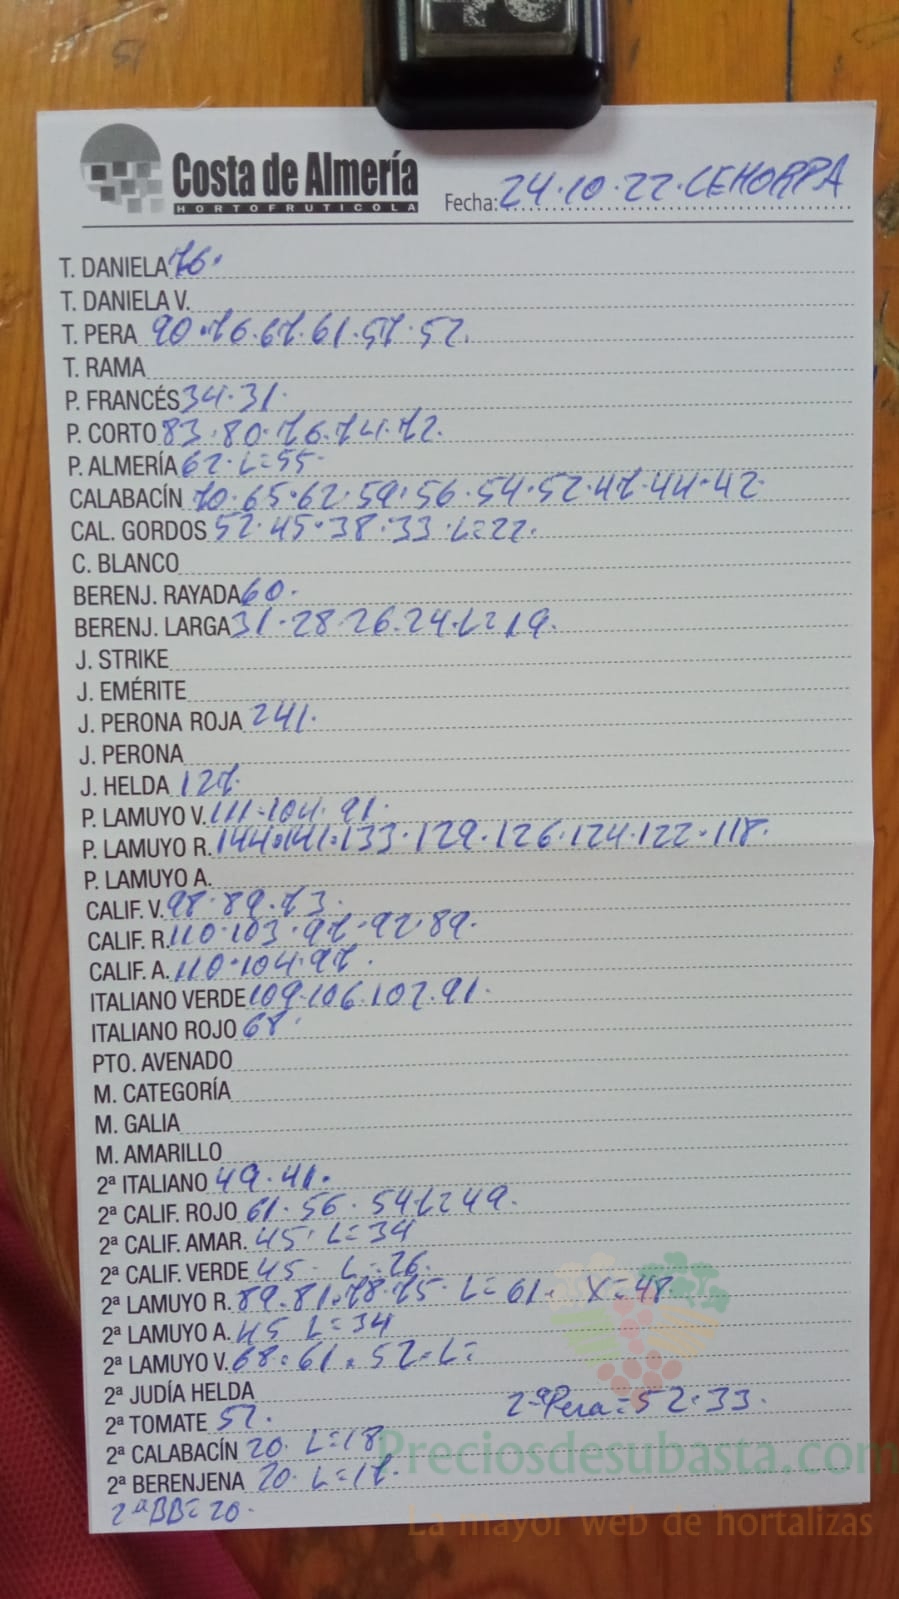 Costa de Almería
HORTOFRUTICOLA
Fecha: 24.10.22. CEHORPA
T. DANIELA 76.
T. DANIELA V.
T. PERA 90.76.67.61.57.52.
T. RAMA
P. FRANCÉS 34.31.
P. CORTO 83.80.76.74.72.
P. ALMERÍA 62. L=55
CALABACÍN 70.65.62.59.56.54.52.47.44.42
CAL. GORDOS 52.45.38.33.L=22.
C. BLANCO
BERENJ. RAYADA 60.
BERENJ. LARGA 31.28.26.24.L=19.
J. STRIKE
J. EMÉRITE
J. PERONA ROJA 241.
J. PERONA
J. HELDA 127.
P. LAMUYO V. 111.104.91.
P. LAMUYO R. 144.141.133.129.126.124.122.118.
P. LAMUYO A.
CALIF. V. 98.89.73.
CALIF. R. 110.103.97.92.89.
CALIF. A. 110.104.97.
ITALIANO VERDE 109.106.102.91.
ITALIANO ROJO 68.
PTO. AVENADO
M. CATEGORÍA
M. GALIA
M. AMARILLO
2ª ITALIANO 49.41.
2ª CALIF. ROJO 61.56.54.L=49.
2ª CALIF. AMAR. 45. L=34
2ª CALIF. VERDE 45. L=26.
2ª LAMUYO R. 89.81.78.75. L=61. X=48.
2ª LAMUYO A. 45 L=34
2ª LAMUYO V. 68.61.52.L=
2ª JUDÍA HELDA
2ª Pera=52.33.
2ª TOMATE 52.
2ª CALABACÍN 20. L=18
2ª BERENJENA 20. L=17.
2ª BB=20.
Preciosdesubasta.com
La mayor web de hortalizas